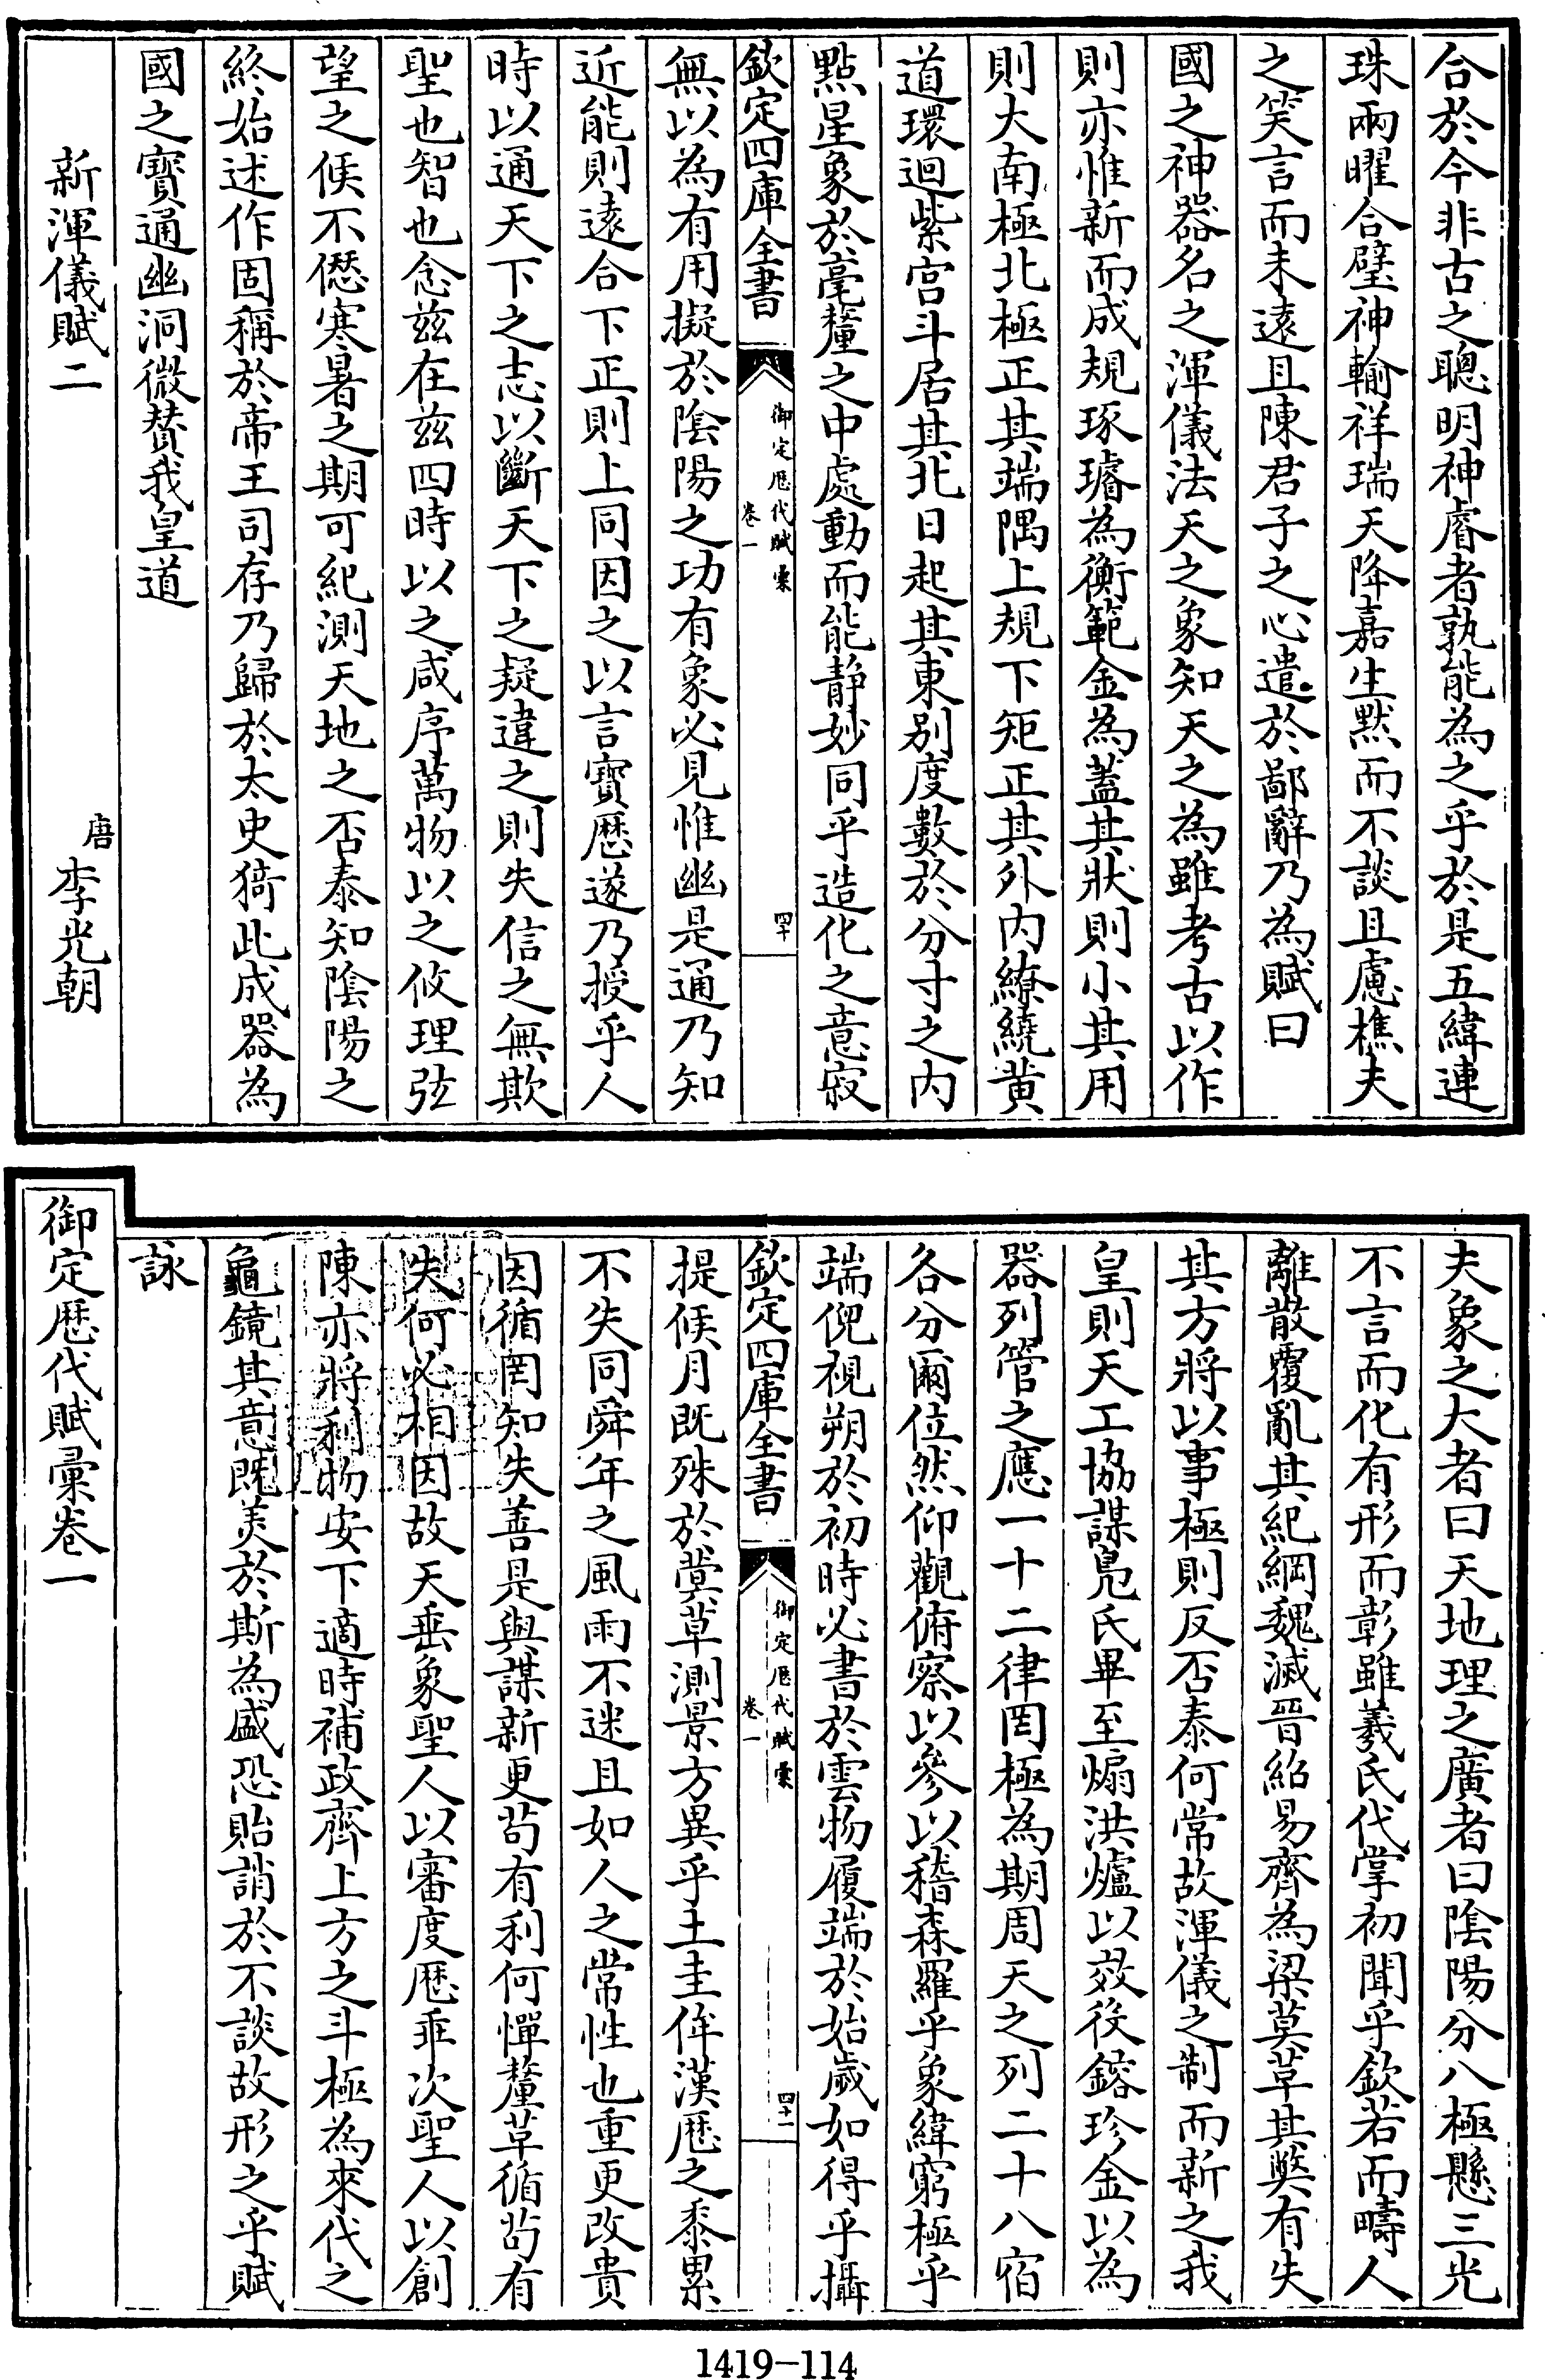 合於今非古之聰明神睿者孰能為之乎於是五緯連
珠兩曜合璧神輸祥瑞天降嘉生默而不談且慮樵夫
之笑言而未遠且陳君子之心遣於鄙辭乃為賦曰
國之神器名之渾儀法天之象知天之為雖考古以作
則亦惟新而成規琢璿為衡範金為蓋其狀則小其用
則大南極北極正其端隅上規下矩正其外內繚繞黄
道環迴紫宮斗居其北日起其東别度數於分寸之内
點星象於毫釐之中處動而能静妙同乎造化之意寂
欽定四庫全書
御定歷代賦彙
卷一
四十
無以為有用擬於陰陽之功有象必見惟幽是通乃知
近能則遠合下正則上同因之以言寶歷遂乃授乎人
時以通天下之志以斷天下之疑違之則失信之無欺
聖也智也念兹在兹四時以之咸序萬物以之攸理弦
望之候不愆寒暑之期可紀測天地之否泰知陰陽之
終始述作固稱於帝王司存乃歸於太史猗此成器為
國之寶通幽洞微贊我皇道
新渾儀賦二
唐
李光朝
夫象之大者曰天地理之廣者曰陰陽分八極懸三光
不言而化有形而彰雖羲氏代掌初聞乎欽若而疇人
離散覆亂其紀綱魏滅晉紹易齊為梁莫革其弊有失
其方將以事極則反否泰何常故渾儀之制而新之我
皇則天工協謀鳧氏畢至煽洪爐以效役鎔珍金以為
器列管之應一十二律罔極為期周天之列二十八宿
各分爾位然仰觀俯察以參以稽森羅乎象緯窮極乎
端倪視朔於初時必書於雲物履端於始歲如得乎攝
欽定四庫全書
御定歷代賦彙
卷一
四十一
提候月既殊於蓂草測景方異乎土圭侔漢歷之黍累
不失同舜年之風雨不迷且如人之常性也重更改貴
因循罔知失善是與謀新更苟有利何憚釐革循苟有
失何必相因故天垂象聖人以審度歷乖次聖人以創
陳亦將利物安下適時補政齊上方之斗極為來代之
龜鏡其意既美於斯為盛恐貽誚於不談故形之乎賦
詠
御定歷代賦彙卷一
1419-114